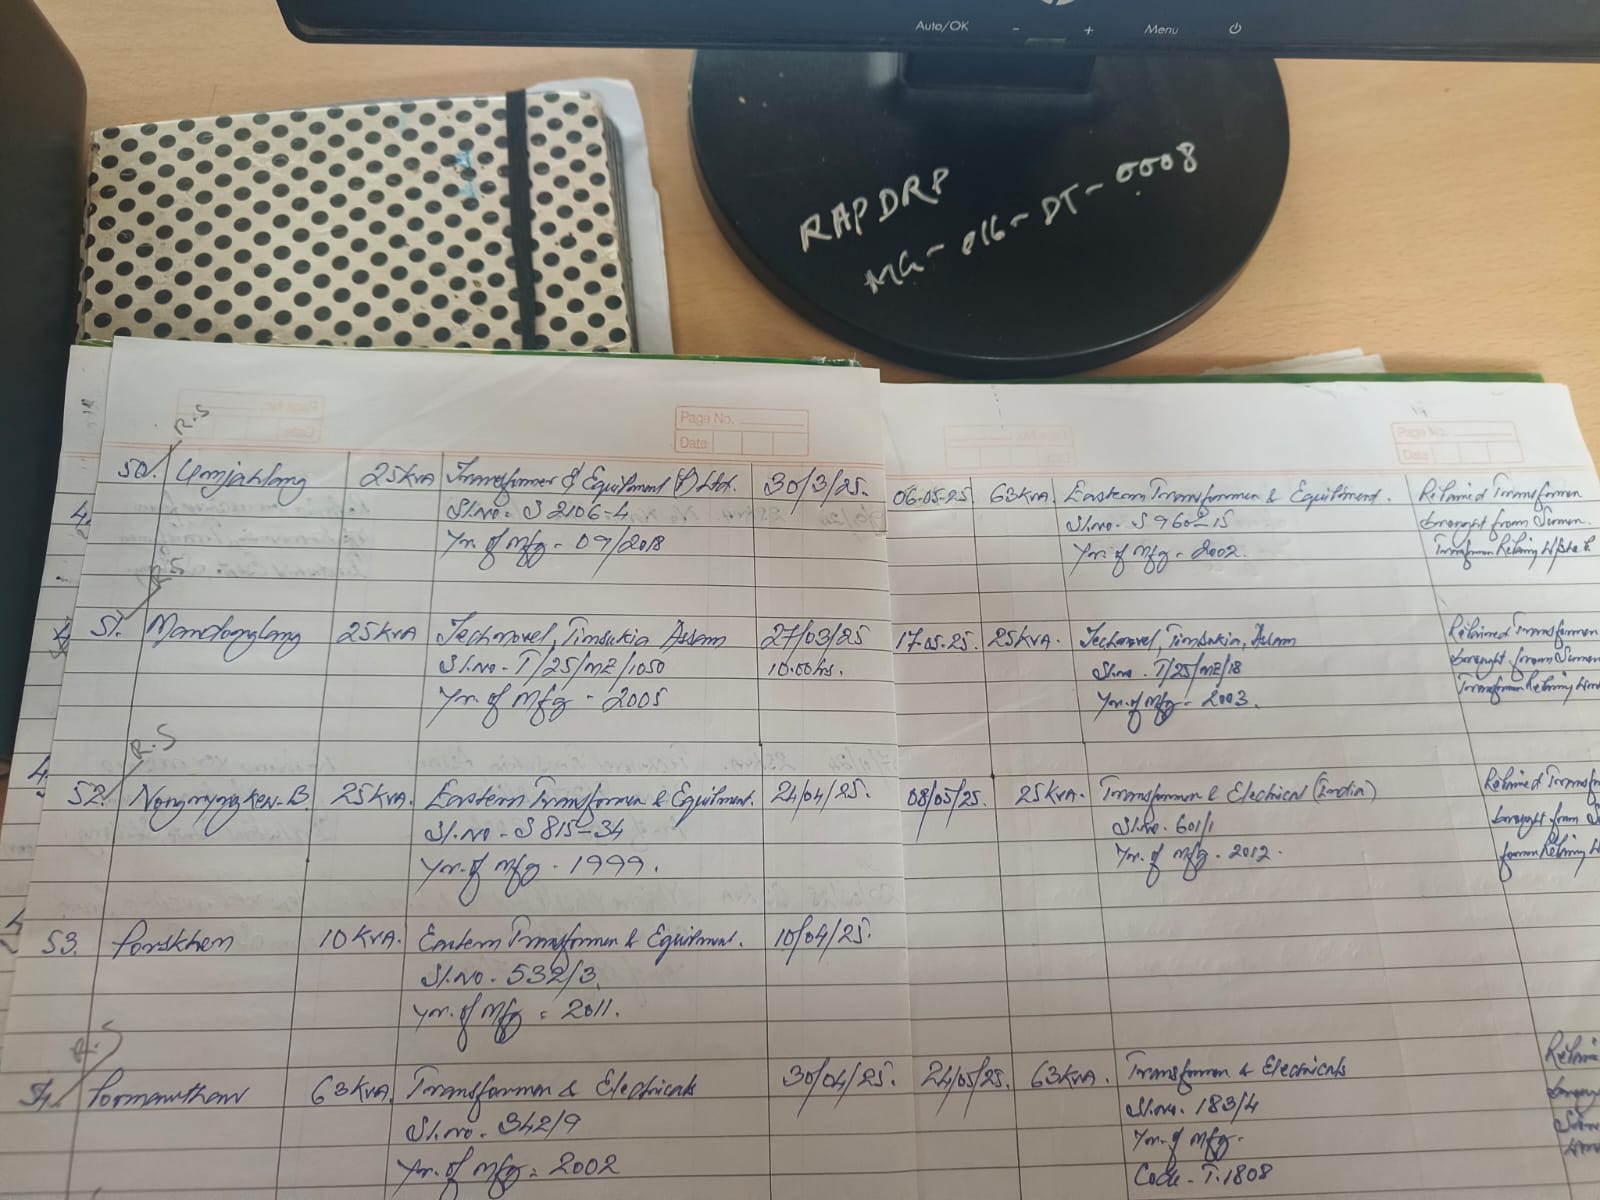 Auto/OK - + Menu
RAPDRP
MG-e16-DT-0008
Page No.
Date
Page No.
Date
R.S
50. Umjahlang 25KVA Transformer & Equipment (P) Ltd. 30/3/25. 06-05-25. 63KVA. Eastern Transformer & Equipment. Retained Transformer
Sl.no- S 2106-4 Sl.no- S 960-15 brought from Sumer.
Yr. of mfg - 09/2018 Yr. of mfg - 2002.
R.S
51. 25KVA Technovel, Tinsukia Assam 27/03/25 17-05-25. 25KVA. Technovel, Tinsukia, Assam
Sl.no - T/25/ME/1050 10.00hs. Sl.no . T/25/ME/18
Yr. of Mfg - 2005 Yr. of Mfg - 2003.
R.S
52. 25KVA. Eastern Transformer & Equipment. 24/04/25. 08/05/25. 25KVA. Transformer & Electrical (India)
Sl.no - S 815-34 Sl.no. 601/1
Yr. of mfg - 1999. Yr. of mfg - 2012.
53. Porskhem 10 KVA. Eastern Transformer & Equipment. 10/04/25.
Sl.No. 532/3
Yr. of Mfg - 2011.
R.S
54. Pormawthaw 63KVA. Transformer & Electricals 30/04/25. 24/05/25. 63KVA. Transformer & Electricals
Sl.no. 342/9 Sl.no. 183/4
Yr. of Mfg - 2002 Yr. of Mfg-
Code - T.1808